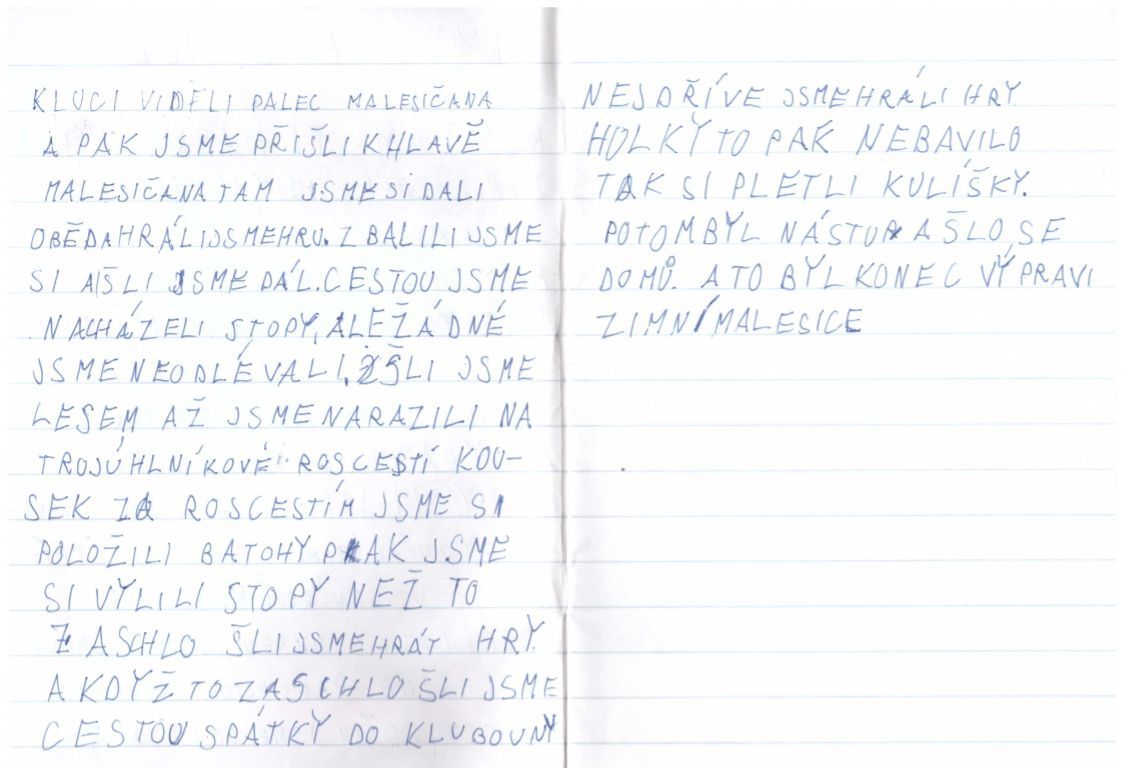 KLUCI VIDĚLI PALEC MALESIČANA
A PAK JSME PŘIŠLI K HLAVĚ
MALESIČANA TAM JSME SI DALI
OBĚD A HRÁLI JSME HRU. ZBALILI JSME
SI A ŠLI JSME DÁL. CESTOU JSME
NACHÁZELI STOPY, ALE ŽÁDNÉ
JSME NEODLÉVALI. ŠLI JSME
LESEM AŽ JSME NARAZILI NA
TROJÚHLNÍKOVÉ ROSCESTÍ KOU-
SEK ZA ROSCESTÍM JSME SI
POLOŽILI BATOHY PAK JSME
SI VYLILI STOPY NEŽ TO
ZASCHLO ŠLI JSME HRÁT HRY.
A KDYŽ TO ZASCHLO ŠLI JSME
CESTOU SPÁTKY DO KLUBOVNY
NEJDŘÍVE JSME HRÁLI HRY
HOLKY TO PAK NEBAVILO
TAK SI PLETLI KULÍŠKY.
POTOM BYL NÁSTUP A ŠLO SE
DOMŮ. A TO BYL KONEC VÝPRAVI
ZIMNÍ MALESICE